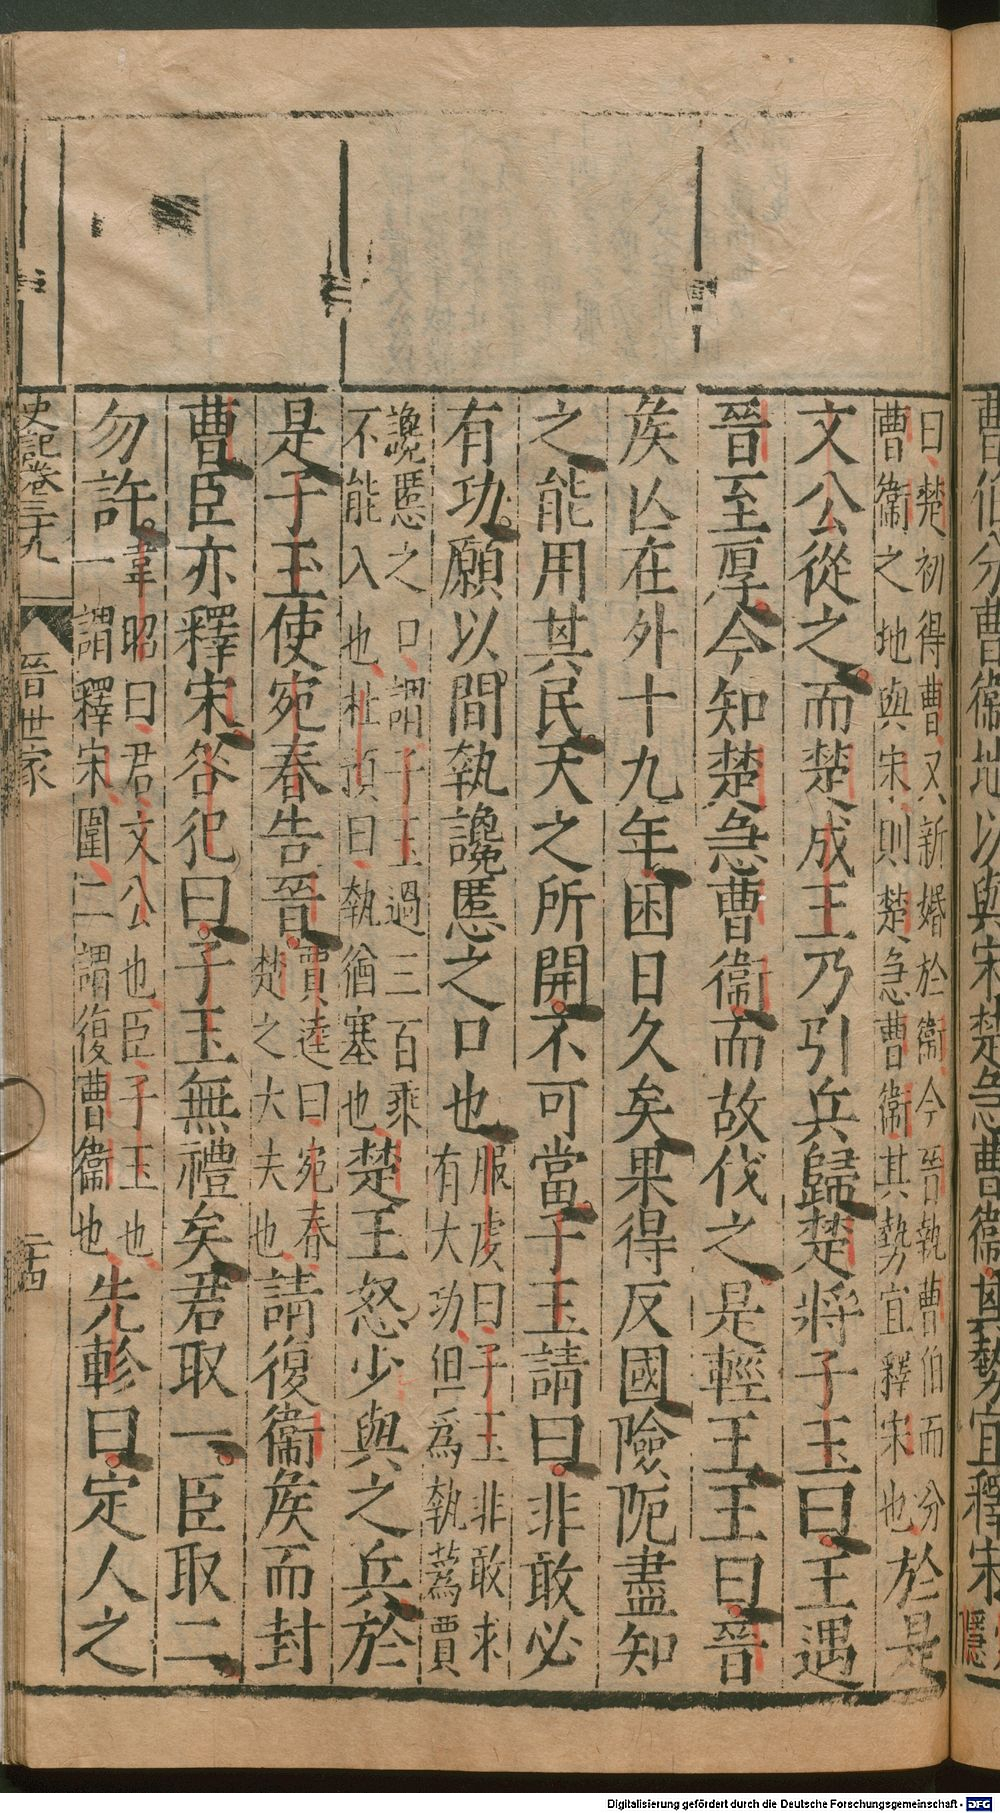 曹伯分曹衞地以與宋楚急曹衞其勢宜釋宋
曰楚初得曹又新婚於衞今晉執曹伯而分
曹衞之地與宋則楚急曹衞其勢宜釋宋也於是
文公從之而楚成王乃引兵歸楚將子玉曰王遇
晉至厚今知楚急曹衞而故伐之是輕王王曰晉
矦亾在外十九年困日久矣果得反國險阨盡知
之能用其民天之所開不可當子玉請曰非敢必
有功願以間執讒慝之口也服虔曰子玉非敢求
有大功但爲執蒍賈
讒慝之口謂子玉過三百乘
不能入也杜預曰執猶塞也楚王怒少與之兵於
是子玉使宛春告晉賈逵曰宛春
楚之大夫也請復衞矦而封
曹臣亦釋宋咎犯曰子玉無禮矣君取一臣取二
勿許韋昭曰君文公也臣子玉也
一謂釋宋圍二謂復曹衞也先軫曰定人之
史記卷三十九 晉世家 二十四
Digitalisierung gefördert durch die Deutsche Forschungsgemeinschaft - DFG